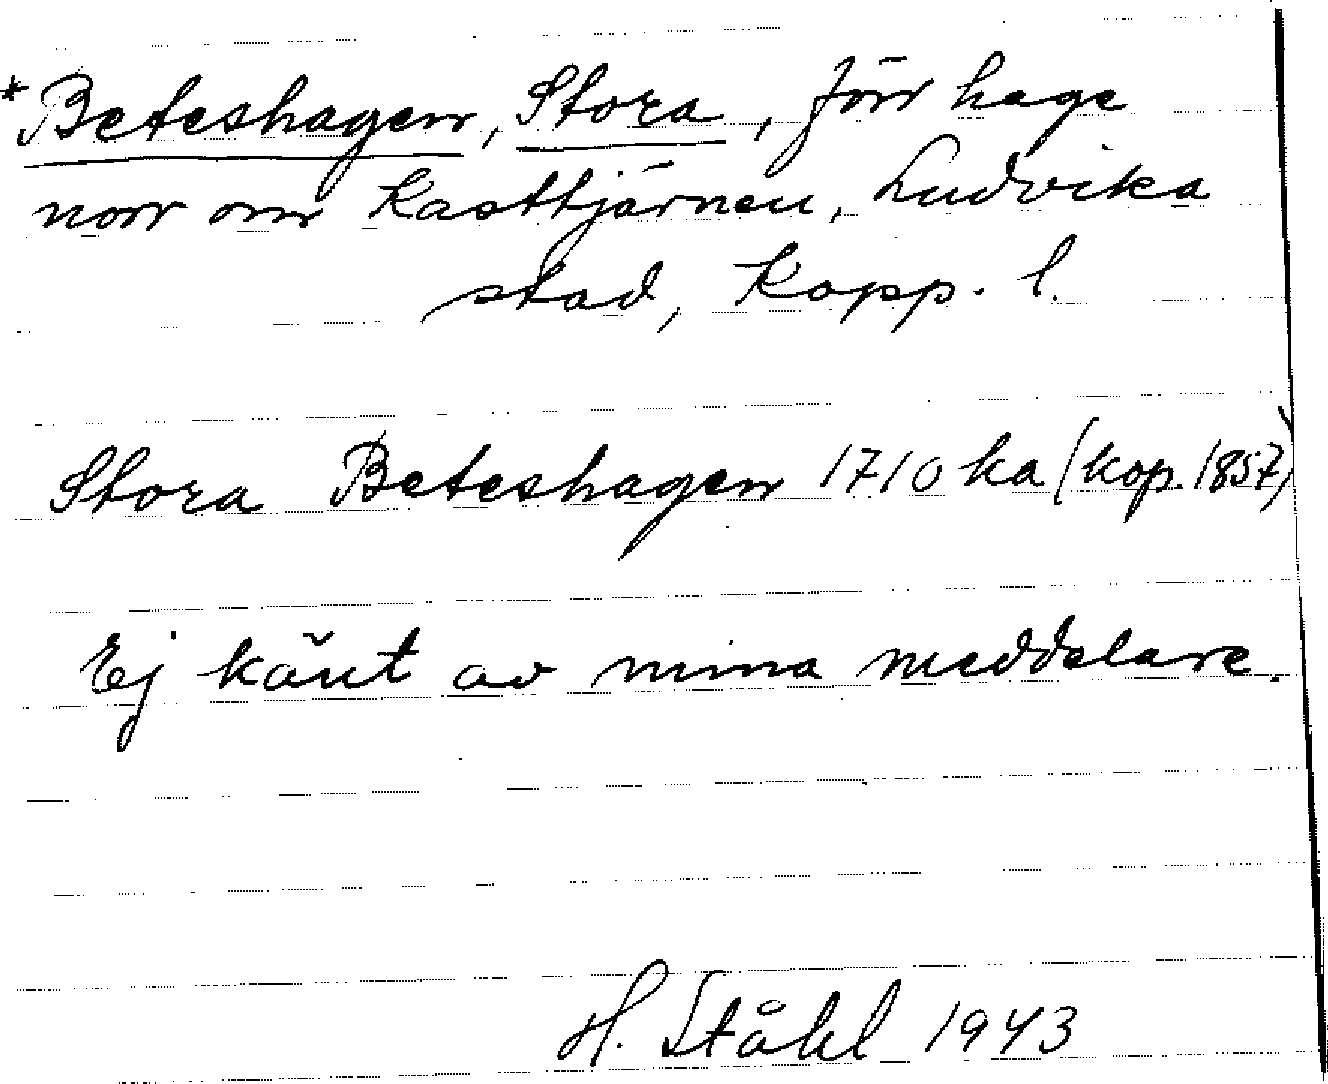 *Beteshagen, Stora, förr hage
norr om Kasttjärnen, Ludvika
stad, Kopp. l.
Stora Beteshagen 1710 ka (kop. 1857)
Ej känt av mina meddelare.
H. Ståhl 1943